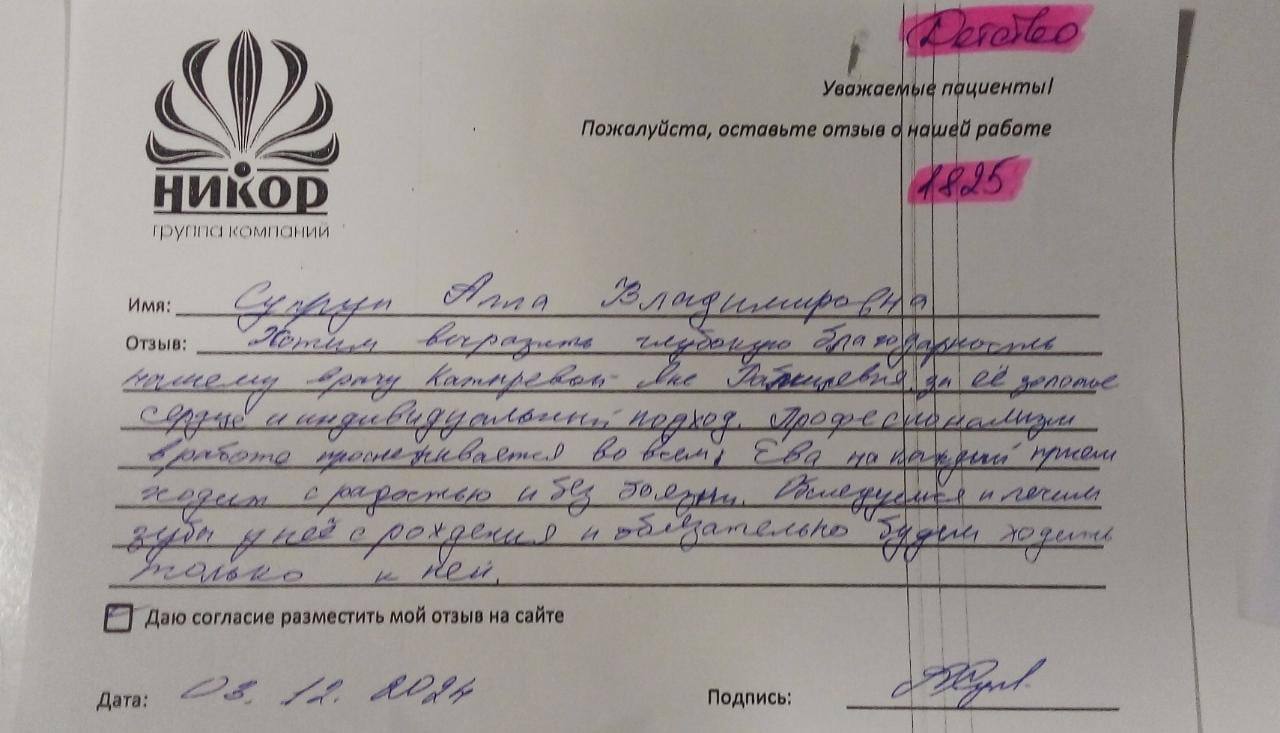 Детство
Уважаемые пациенты!
Пожалуйста, оставьте отзыв о нашей работе
1825
НИКОР
группа компаний
Имя: Супрун Алла Владимировна
Отзыв: Хотим выразить глубокую благодарность
нашему врачу Яне за её золотое
сердце и индивидуальный подход. Профессионализм
в работе прослеживается во всём. Ева на каждый прием
ходит с радостью и без боязни. Обследуемся и лечим
зубы у неё с рождения и обязательно будем ходить
только к ней.
Даю согласие разместить мой отзыв на сайте
Дата: 03.12.2024
Подпись: